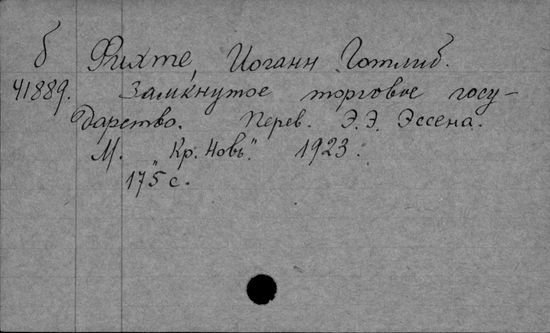 б Фихте, Иоганн Готлиб.
41889. Замкнутое торговое госу-
дарство. Перев. Э.Э. Эссена.
М. „Кр. Новь". 1923.
175 с.